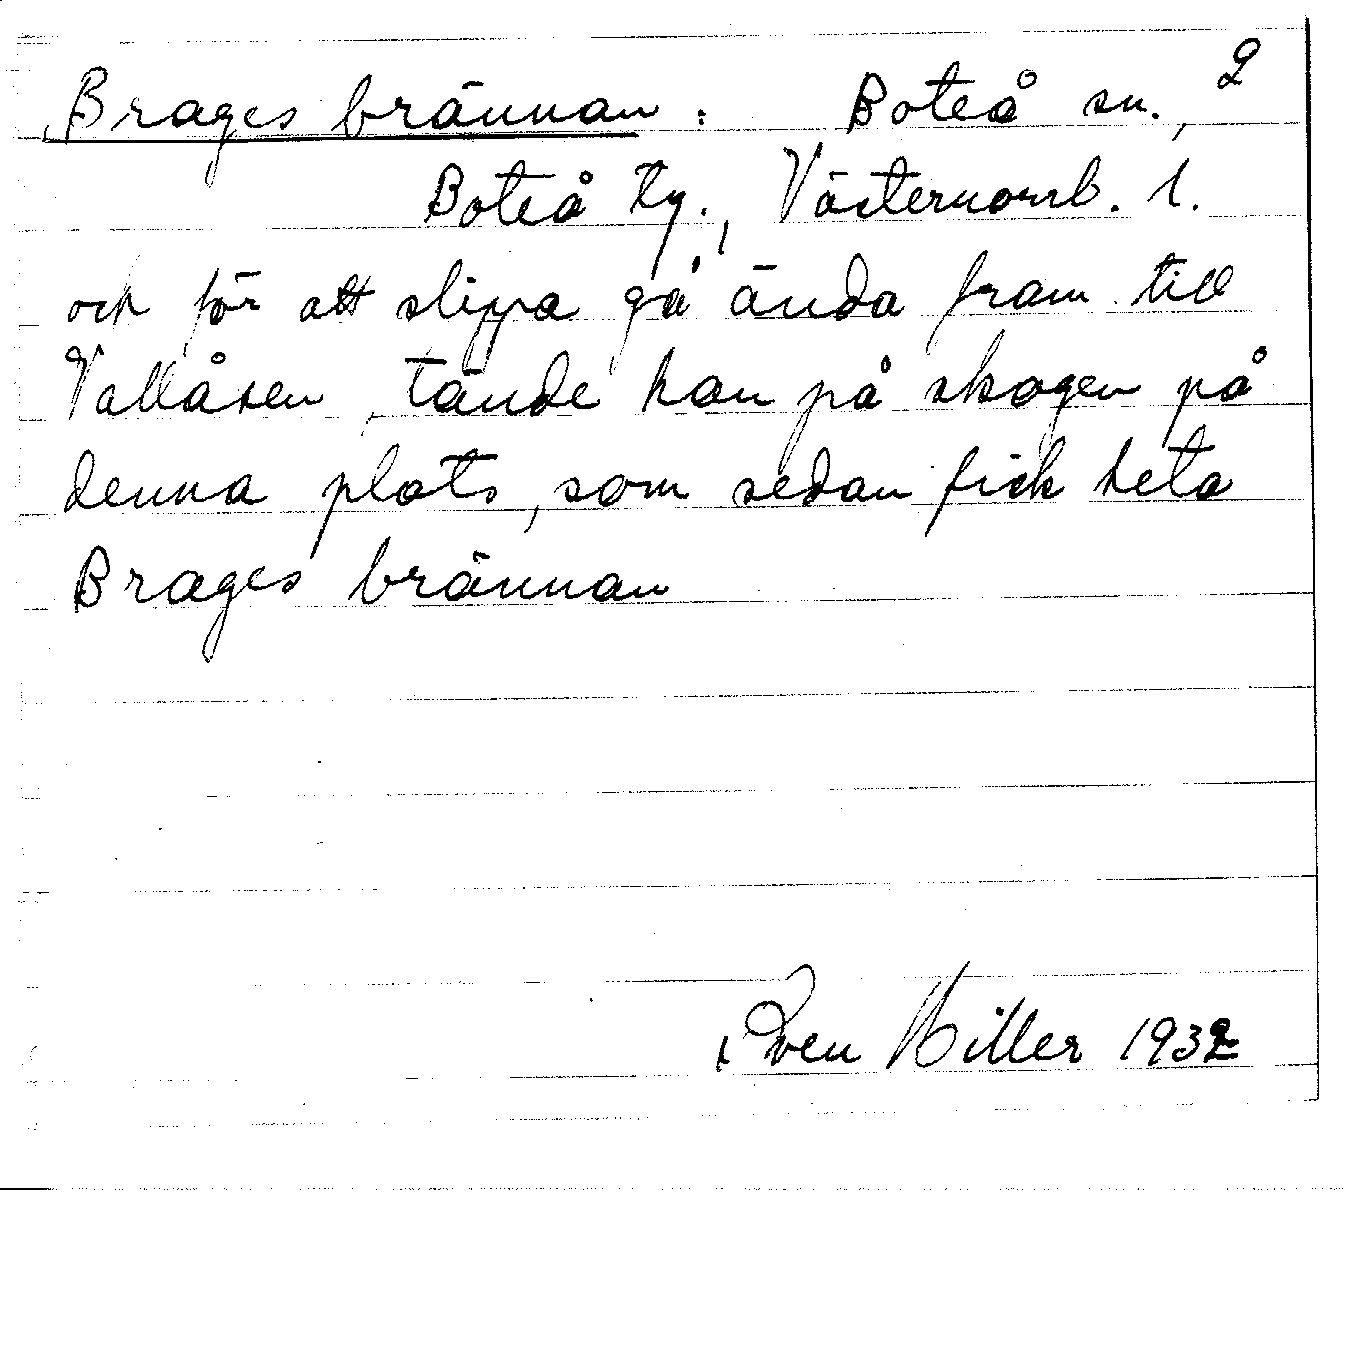 Brages brännan : Boteå sn., 2
Boteå tg., Västernorrl. l.
och för att slippa gå ända fram till
Vallåsen tände han på skogen på
denna plats, som sedan fick heta
Brages brännan
Sven Hiller 1932